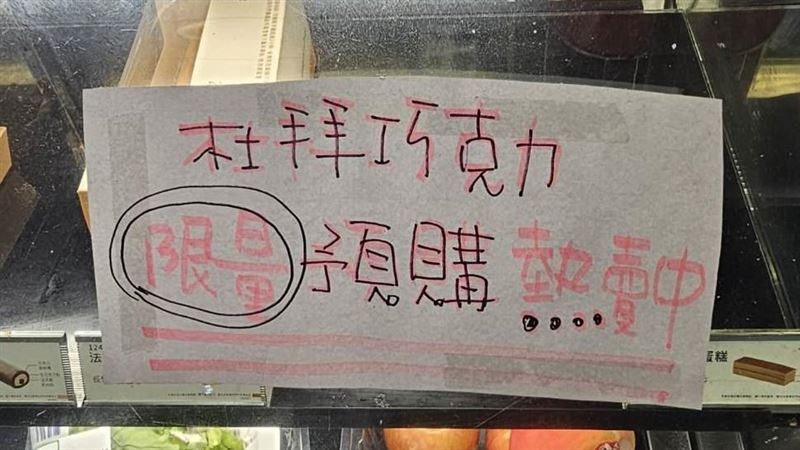 杜拜巧克力
限量預購熱賣中
124
法
蛋糕